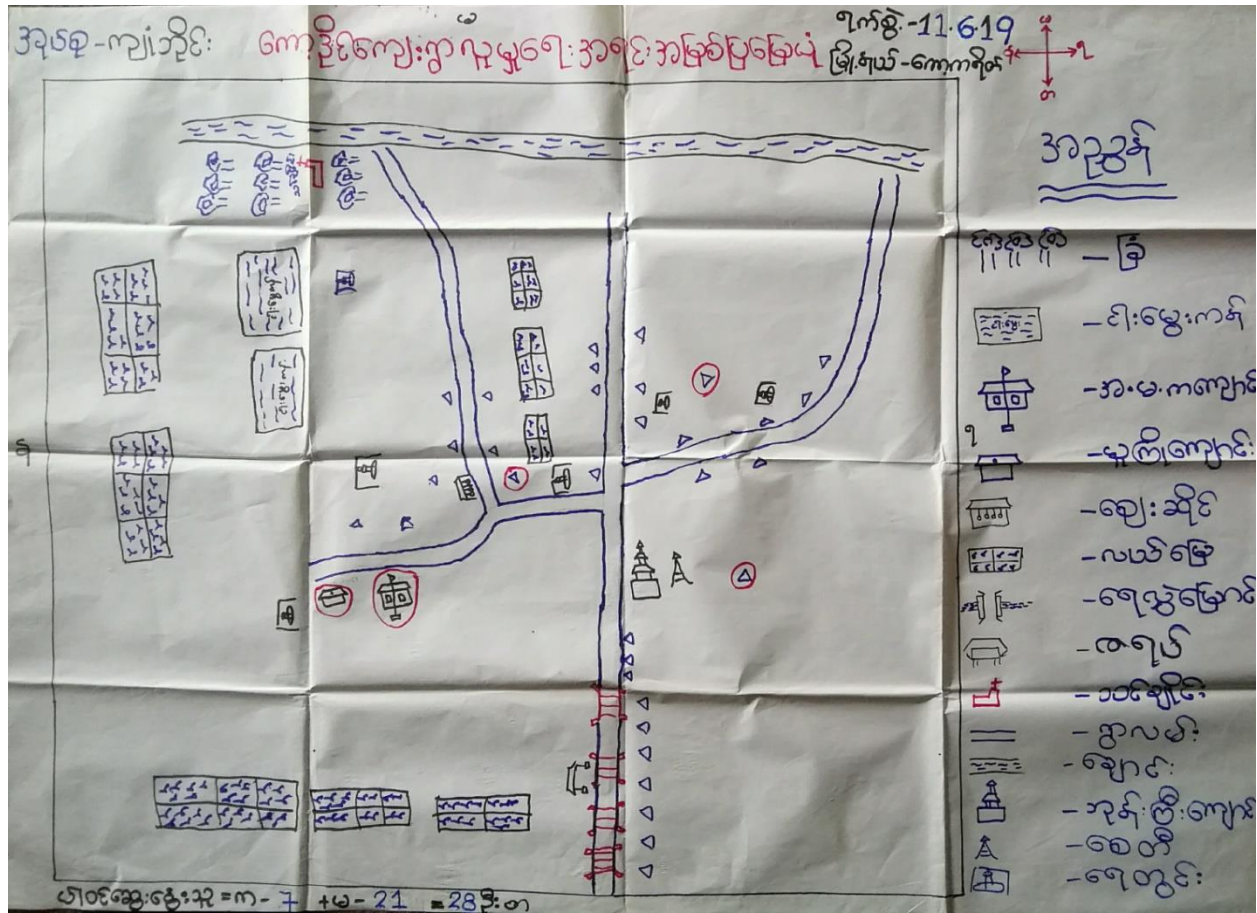 အုပ်စု-ကျုံဘိုင်း
ကော့ဒိုင်ကျေးရွာလူမှုရေးအရင်းအမြစ်ပြမြေပုံ
ရက်စွဲ.-11.6.19
မြို့နယ်-ကော့ကရိတ်
အညွှန်း
-ခြံ
-ငါးမွေးကန်
-အ.မ.ကကျောင်း
-မူကြိုကျောင်း
-ဈေးဆိုင်
-လယ်မြေ
-ရေသွယ်မြောင်း
-ဇရပ်
-ဘုရားကျောင်း
-ရွာလမ်း
-ချောင်း
-ဘုန်းကြီးကျောင်း
-စေတီ
-ရေတွင်း
ပါဝင်ဆွေးနွေးသူ=က-7 +မ-21 =28ဦး